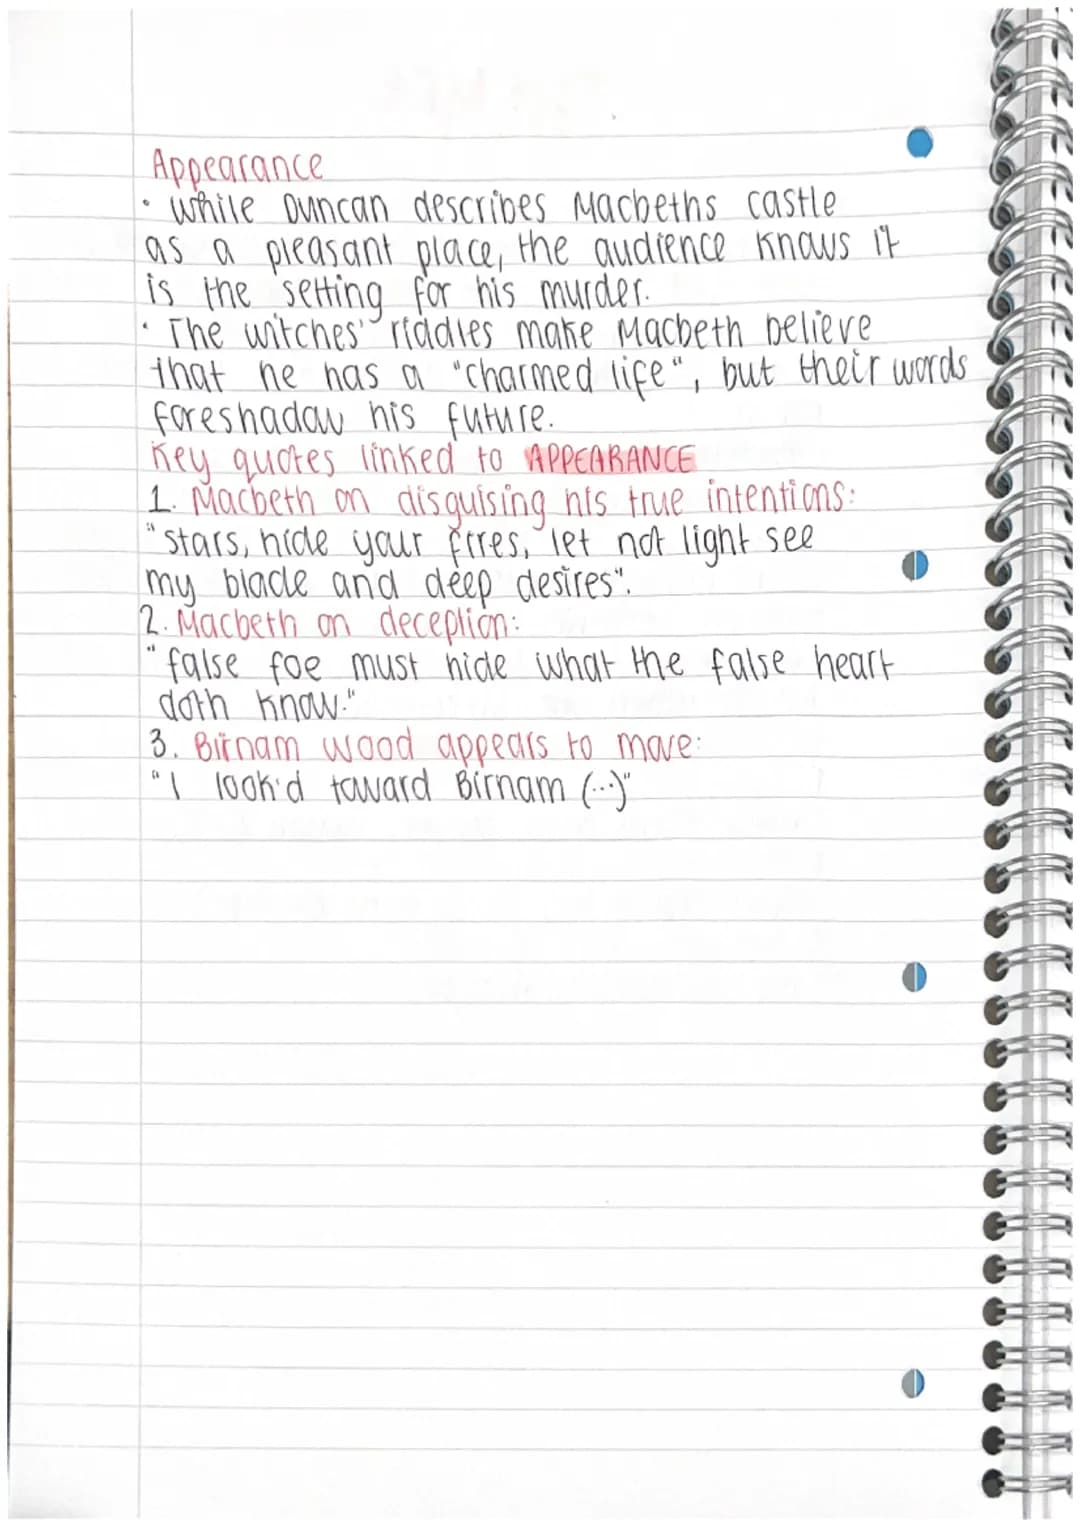 Appearance
• While Duncan describes Macbeths castle
as a pleasant place, the audience knows it
is the setting for his murder.
• The witches' riddles make Macbeth believe
that he has a "charmed life", but their words
foreshadow his future.
Key quotes linked to APPEARANCE
1. Macbeth on disguising his true intentions:
"stars, hide your fires, let not light see
my blade and deep desires".
2. Macbeth on deception:
"false foe must hide what the false heart
doth know."
3. Birnam wood appears to move:
"I look'd toward Birnam (...)"